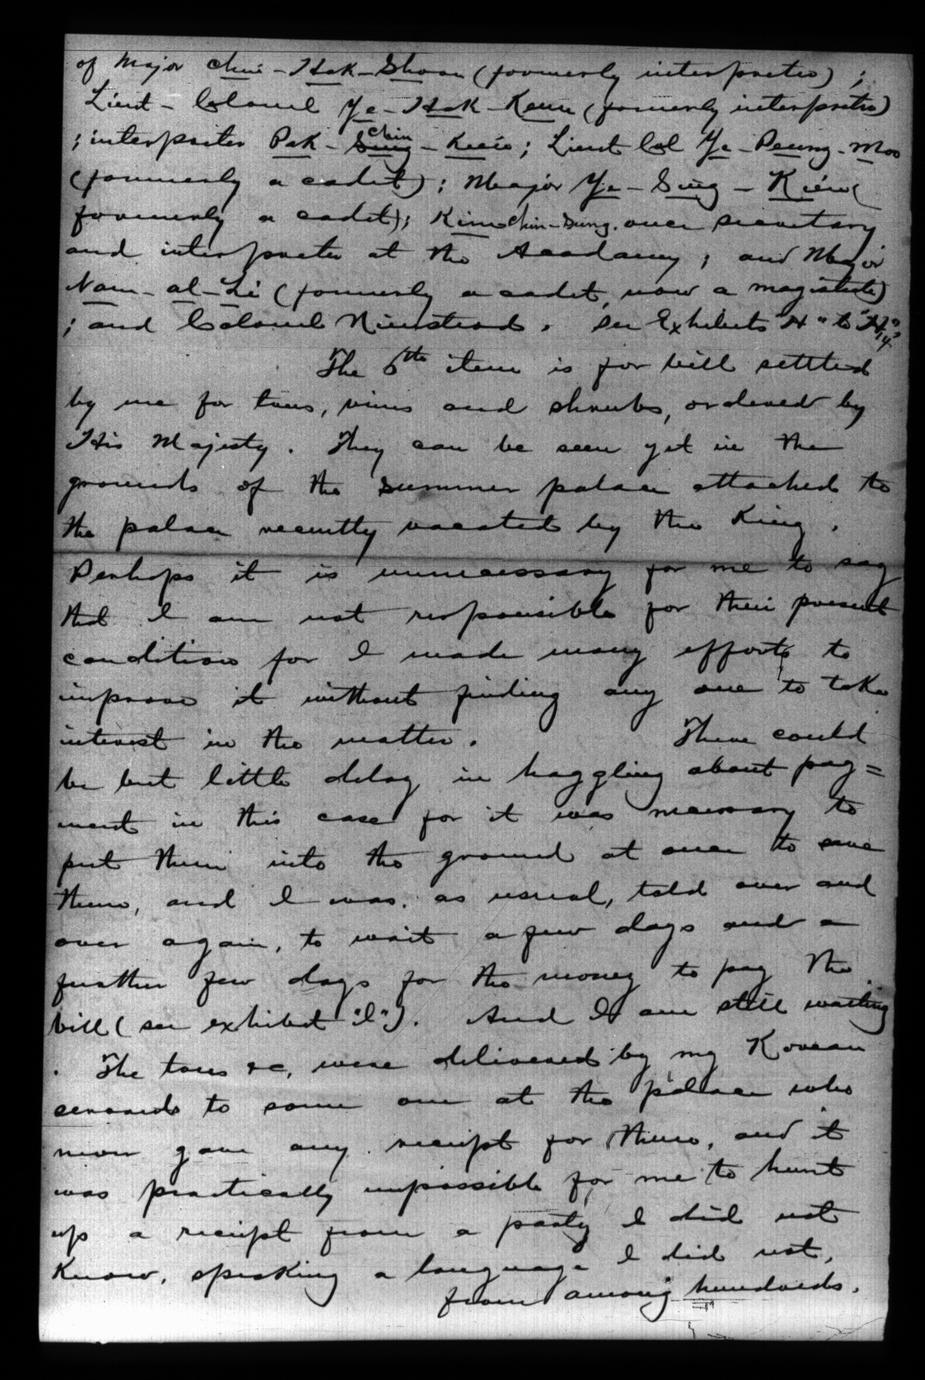 of Major Chui-Hak-Shoon (formerly interpreter) ;
Lieut-Colonel Ye-Hak-Keun (formerly interpreter)
; interpreter Pak-Chin-Keio; Lieut Col Ye-Peung-Moo
(formerly a cadet) ; Meajor Ye-Sing-Kieu (
formerly a cadet); Kim Chin-Sung, once secretary
and interpreter at the Academy ; and Major
Nam-al-Li (formerly a cadet, now a magistrate)
; and Colonel Nienstead. See Exhibits "H" to "H14"
The 6th item is for bill settled
by me for trees, vines and shrubs, ordered by
His Majesty. They can be seen yet in the
grounds of the Summer palace attached to
the palace recently vacated by the King.
Perhaps it is unnecessary for me to say
that I am not responsible for their present
condition for I made many efforts to
improve it without finding any one to take
interest in the matter. There could
be but little delay in haggling about pay=
ment in this case for it was necessary to
put them into the ground at once to save
them, and I was, as usual, told over and
over again, to wait a few days and a
further few days for the money to pay the
bill (see exhibit "I"). And I am still waiting
. The trees &c, were delivered by my Korean
servants to some one at the palace who
never gave any receipt for them, and it
was practically impossible for me to hunt
up a receipt from a party I did not
know, speaking a language I did not,
from among hundreds.